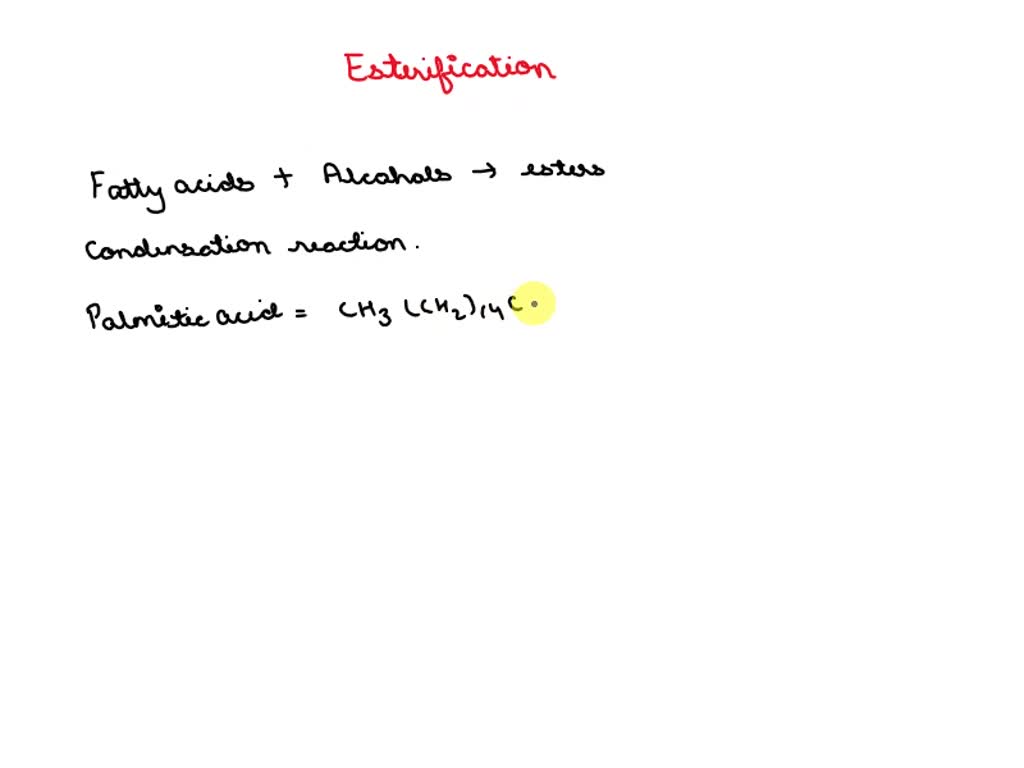 Esterification
Fatty acids + Alcohals → esters
Condensation reaction.
Palmitic acid = CH3 (CH2)14 C